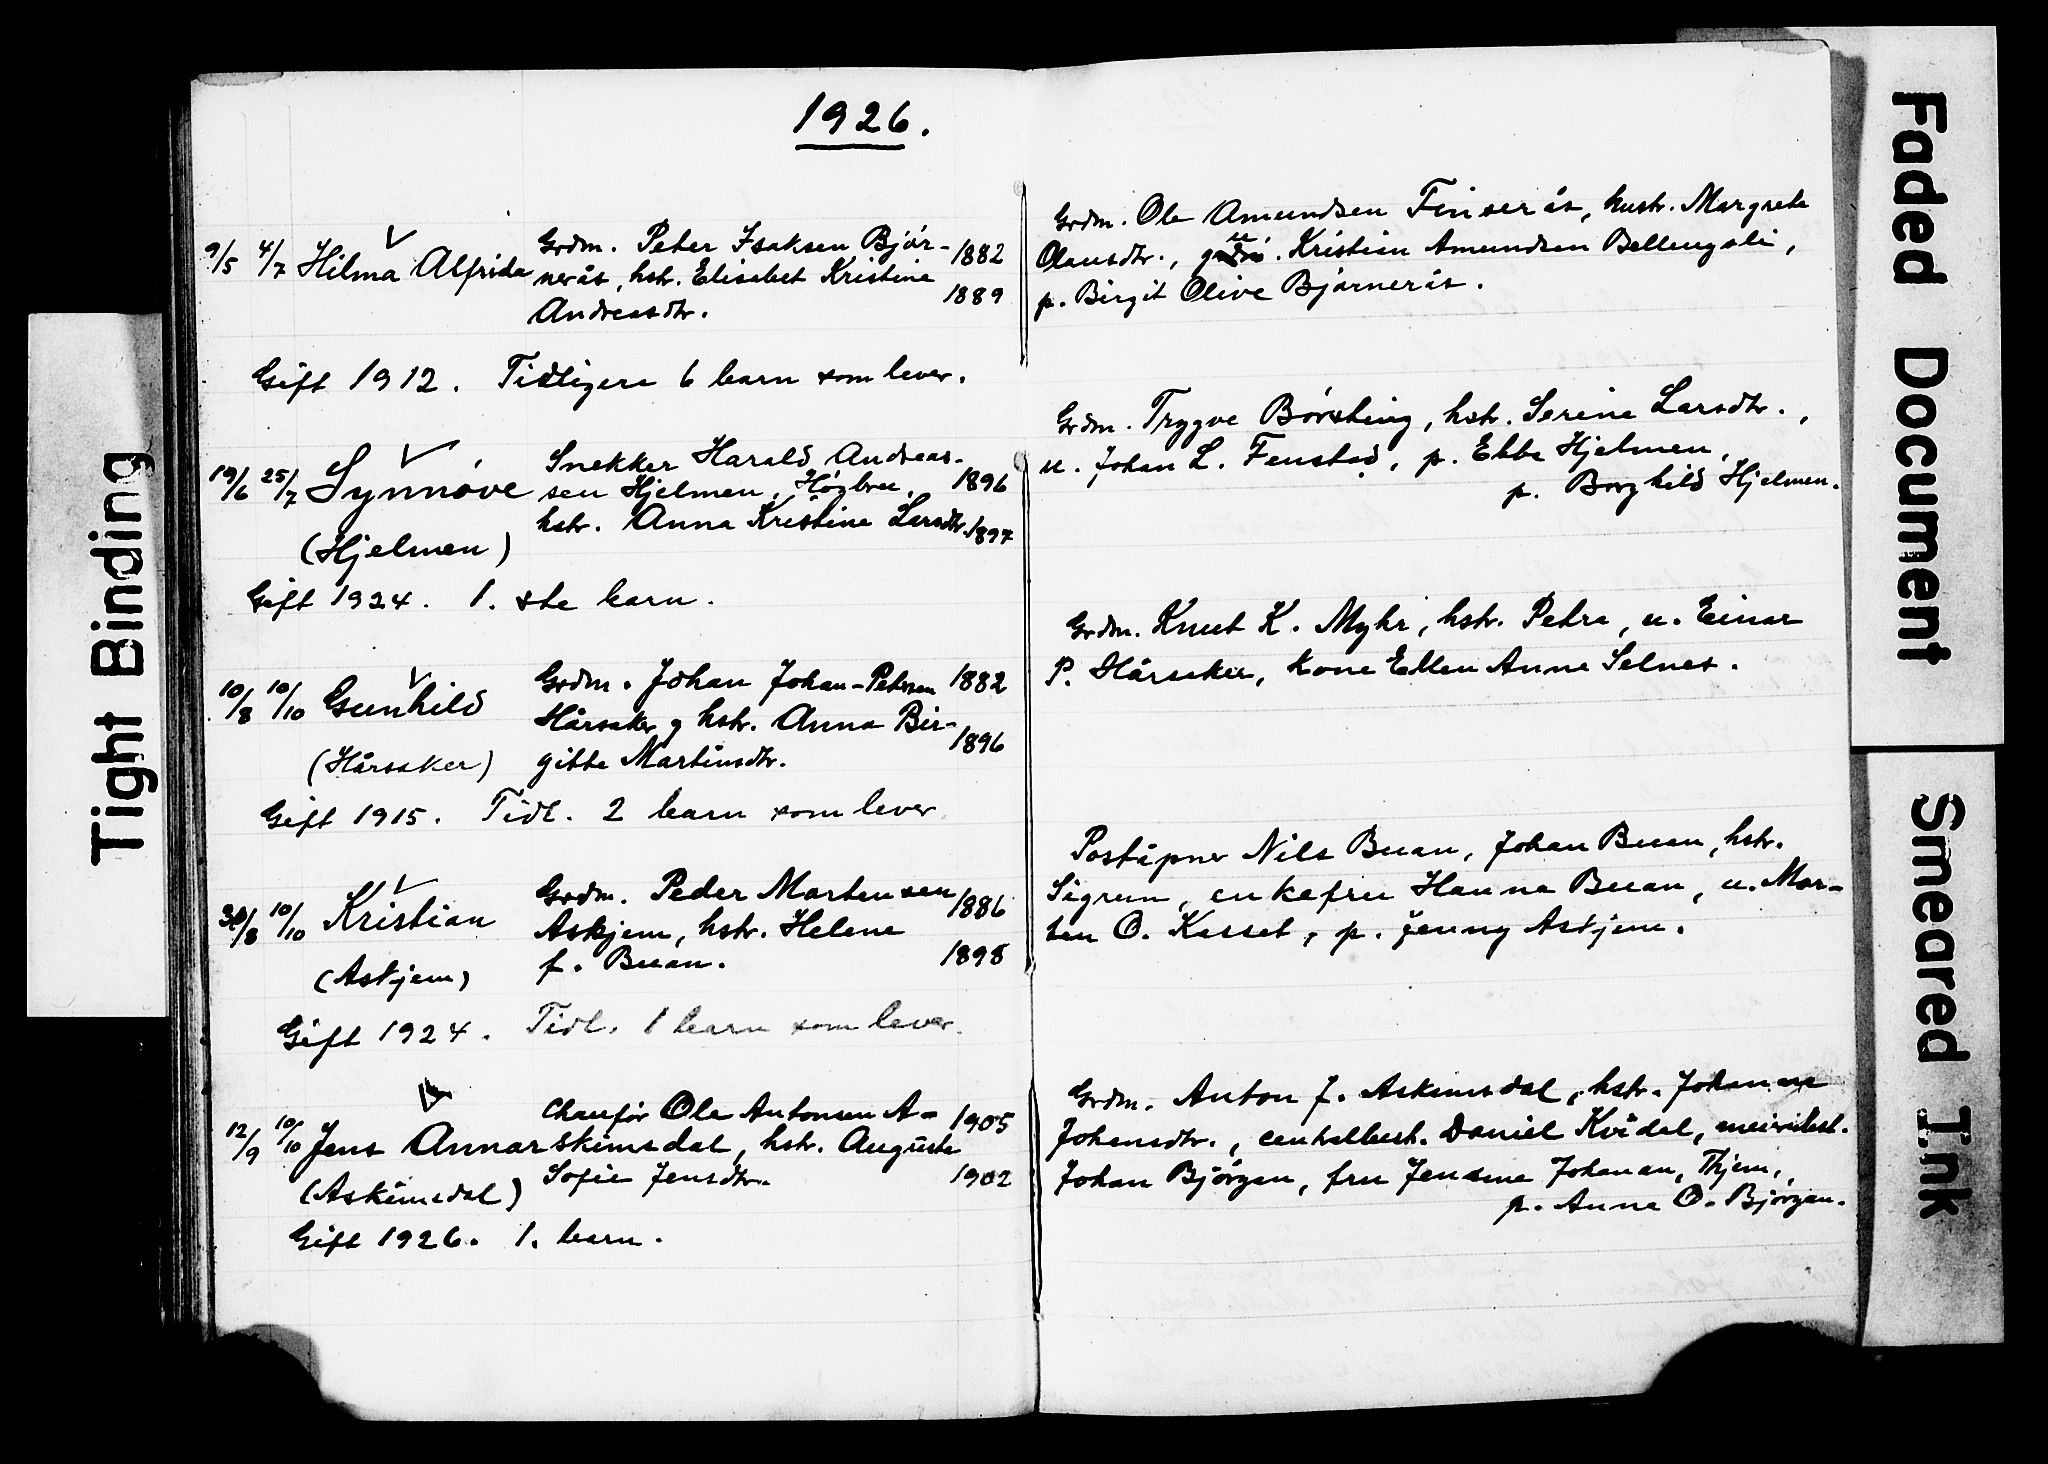 1926.
9/5 4/7 Hilma Alfrida
Grdm. Peter Isaksen Bjør- 1882
nerås, hstr. Elisabet Kristine
1889
Andreasdtr.
Gift 1912. Tidligere 6 barn som lever.
19/6 25/7 Synnøve
(Hjelmen)
Snekker Harald Andreas-
sen Hjelmen, Høgbru, 1896
hstr. Anna Kristine Larsdtr. 1897
Gift 1924. 1. ste barn.
10/8 10/10 Gunhild
(Hårsaker)
Grdm. Johan Johan-Petersen 1882
Hårsaker g hstr. Anna Bir-
1896
gitte Martinsdtr.
Gift 1915. Tidl. 2 barn som lever.
/8 10/10 Kristian
(Askjem)
Grdm. Peder Martensen
1886
Askjem, hstr. Helene
f. Buan. 1898
Gift 1924. Tidl. 1 barn som lever.
12/9 10/10 Jens Annar
(Askimsdal)
Chaufør Ole Antonsen A- 1905
skimsdal, hstr. Auguste
Sofie Jensdtr. 1902
Gift 1926. 1. barn.
Grdm. Ole Amundsen Finserås, hustr. Margrete
Olausdtr., u. Kristian Amundsen Bellengsli,
p. Birgit Olive Bjørnerås.
Grdm. Trygve Børsting, hstr. Serine Larsdtr.,
u. Johan L. Fenstad, p. Ebba Hjelmen,
p. Borghild Hjelmen.
Grdm. Knut K. Myhr, hstr. Petra, u. Einar
P. Hårsaker, kone Ellen Anna Selnes.
Poståpner Nils Buan, Johan Buan, hstr.
Sigrun, enkefru Hanna Buan, u. Mor-
ten O. Kasset, p. Jenny Askjem.
Grdm. Anton J. Askimsdal, hstr. Johanna
Johansdtr., centralbest. Daniel Kvidal, meieribest.
Johan Bjørgan, fru Jensine Johansen, Thjem,
p. Anna O. Bjørgan.
Tight Binding
Faded Document
Smeared Ink